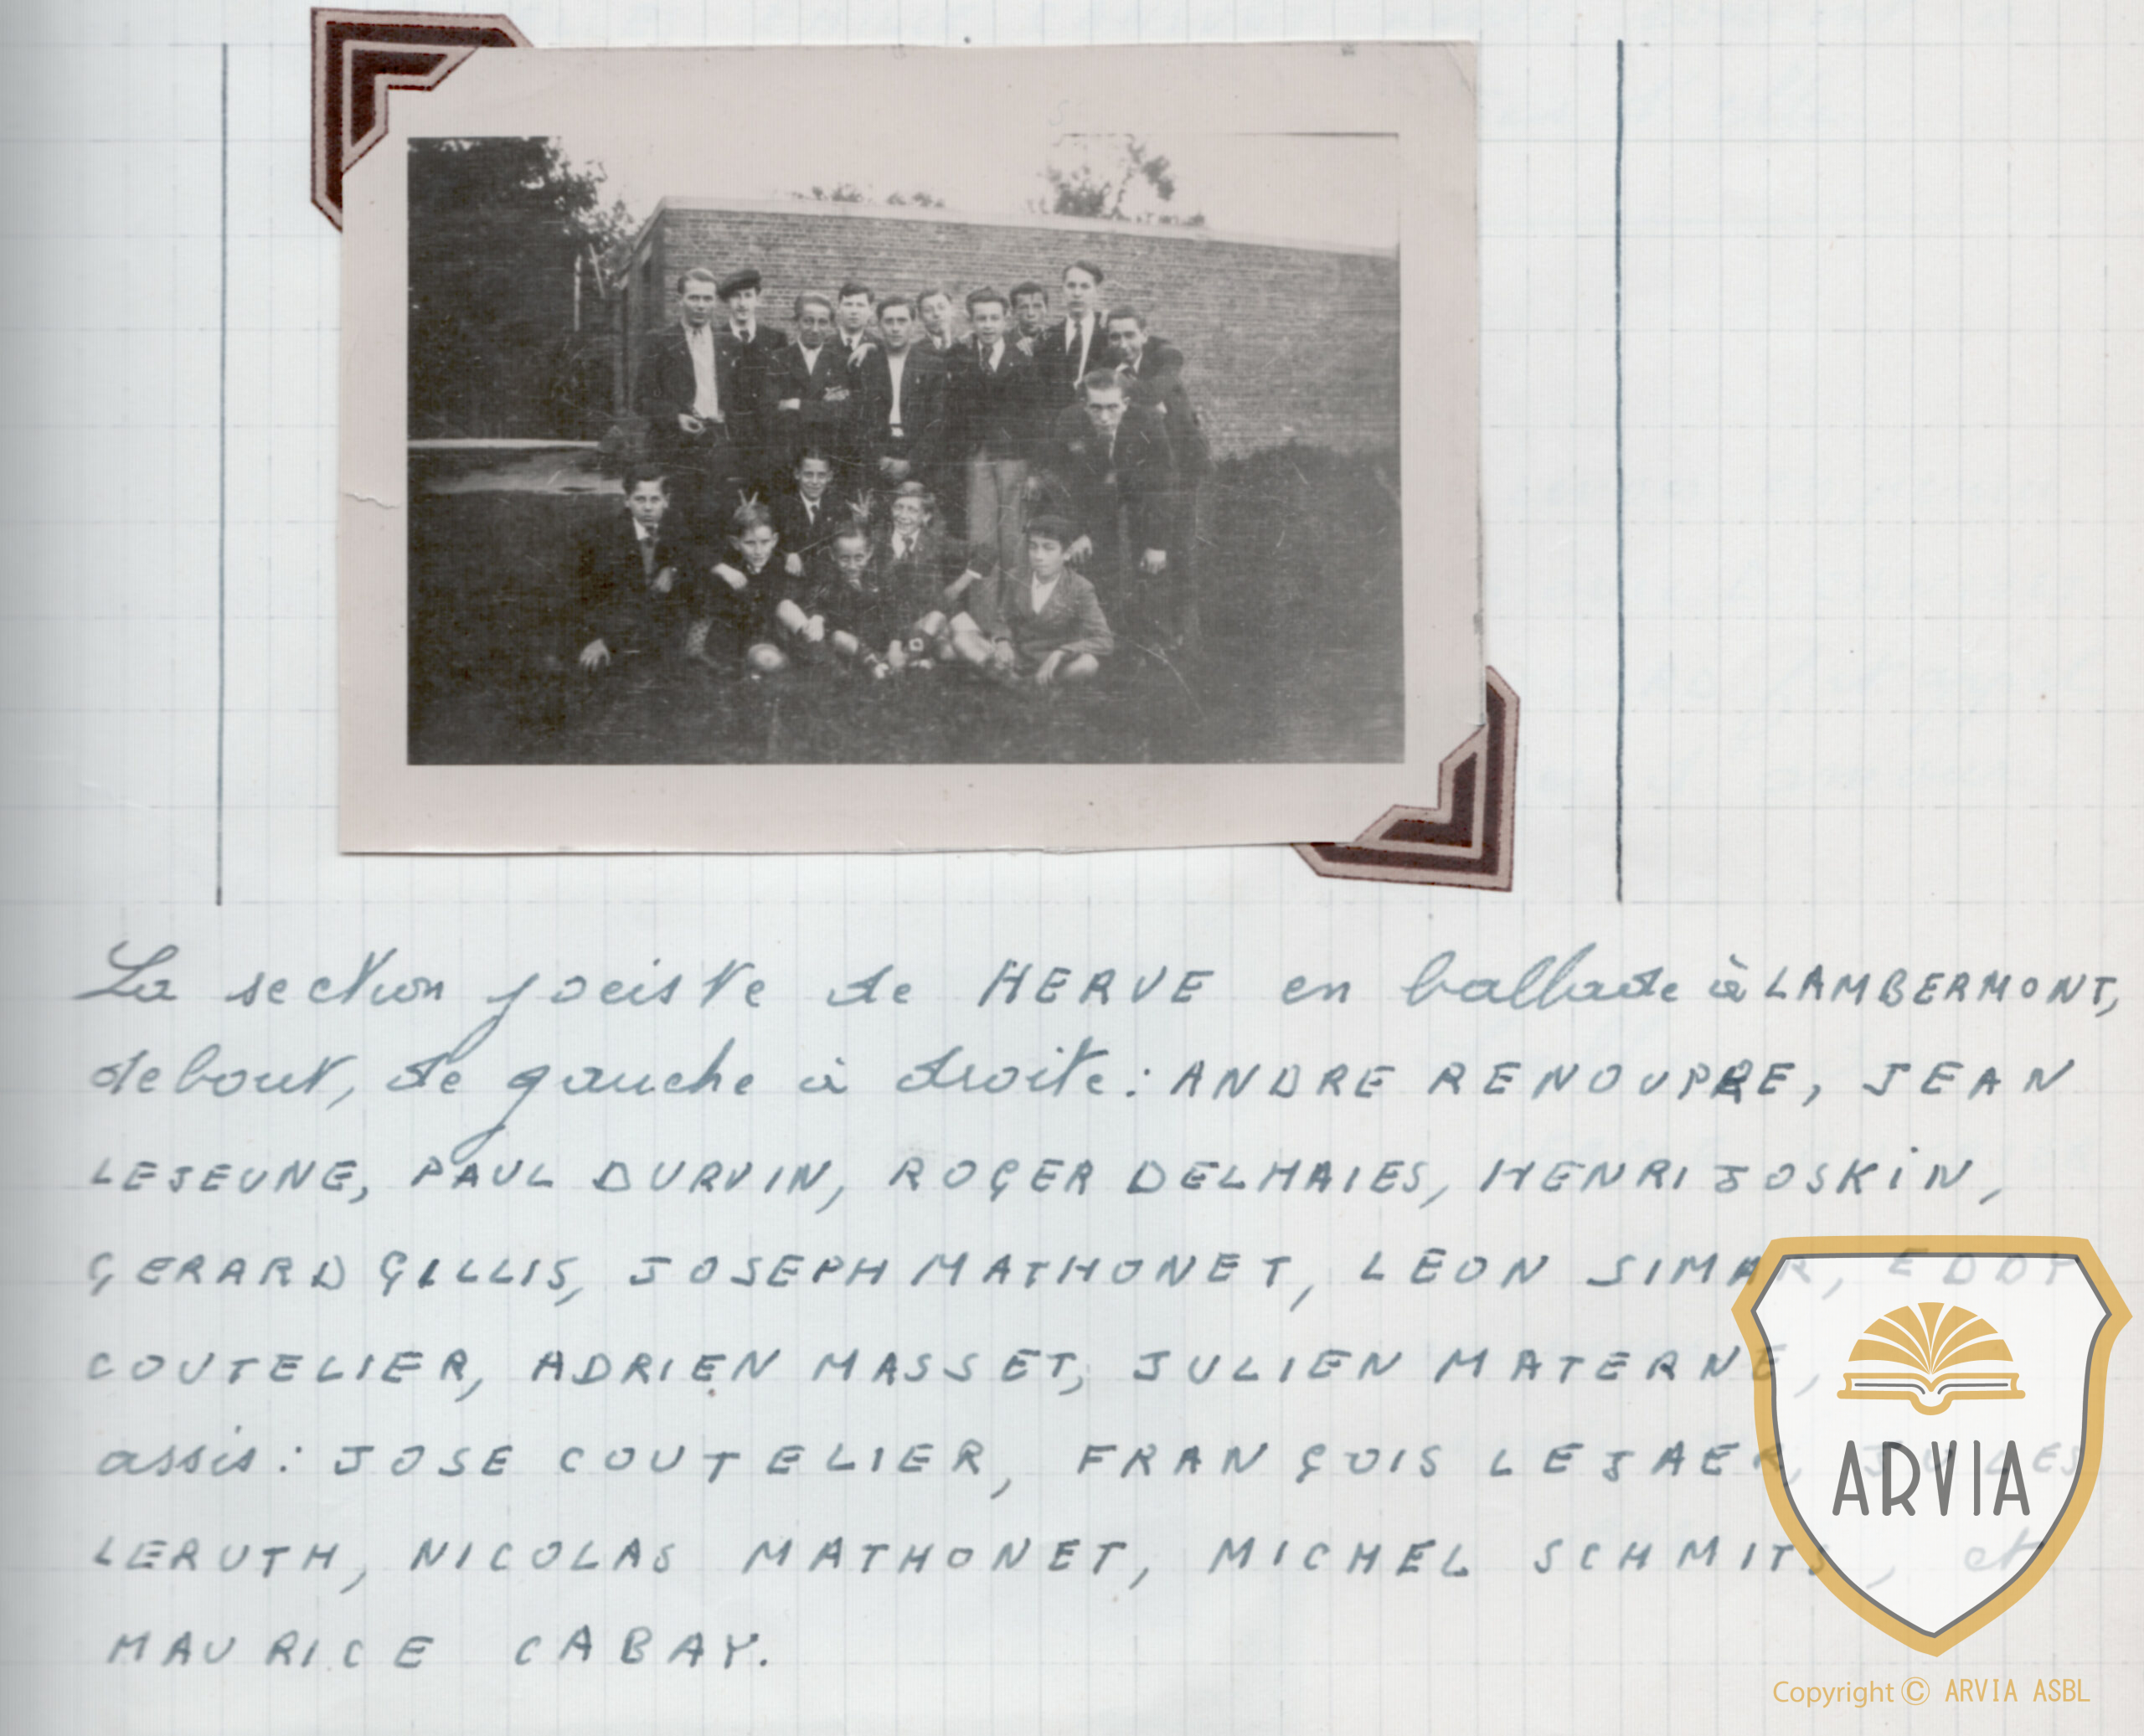 La section jociste de HERVE en ballade à LAMBERMONT,
debout, de gauche à droite: ANDRE RENOUPRE, JEAN
LEJEUNE, PAUL DURVIN, ROGER DELHAIES, HENRI JOSKIN,
GERARD GILLIS, JOSEPH MATHONET, LEON SIMAR, EDDY
COUTELIER, ADRIEN MASSET, JULIEN MATERNE,
assis: JOSE COUTELIER, FRANÇOIS LEJAER, JULES
LERUTH, NICOLAS MATHONET, MICHEL SCHMITS, et
MAURICE CABAY.
ARVIA
Copyright © ARVIA ASBL